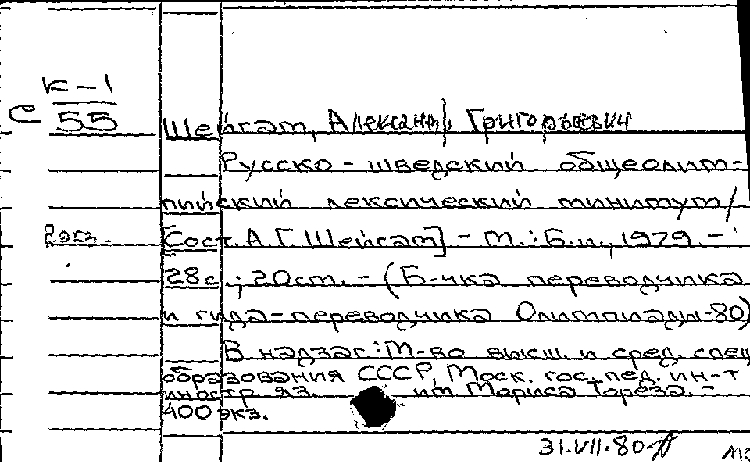 К-1
С 55
Шейгам, Александр Григорьевич
Русско-шведский общеолим-
пийский лексический минимум/
[Сост. А.Г. Шейгам] - М.: Б.и., 1979. -
28с.; 20см. - (Б-чка переводчика
и гида-переводчика Олимпиады-80)
В надзаг.: М-во высш. и сред. спец
образования СССР, Моск. гос. пед. ин-т
иностр. яз. им Мориса Тореза. -
400 экз.
31.VII.80